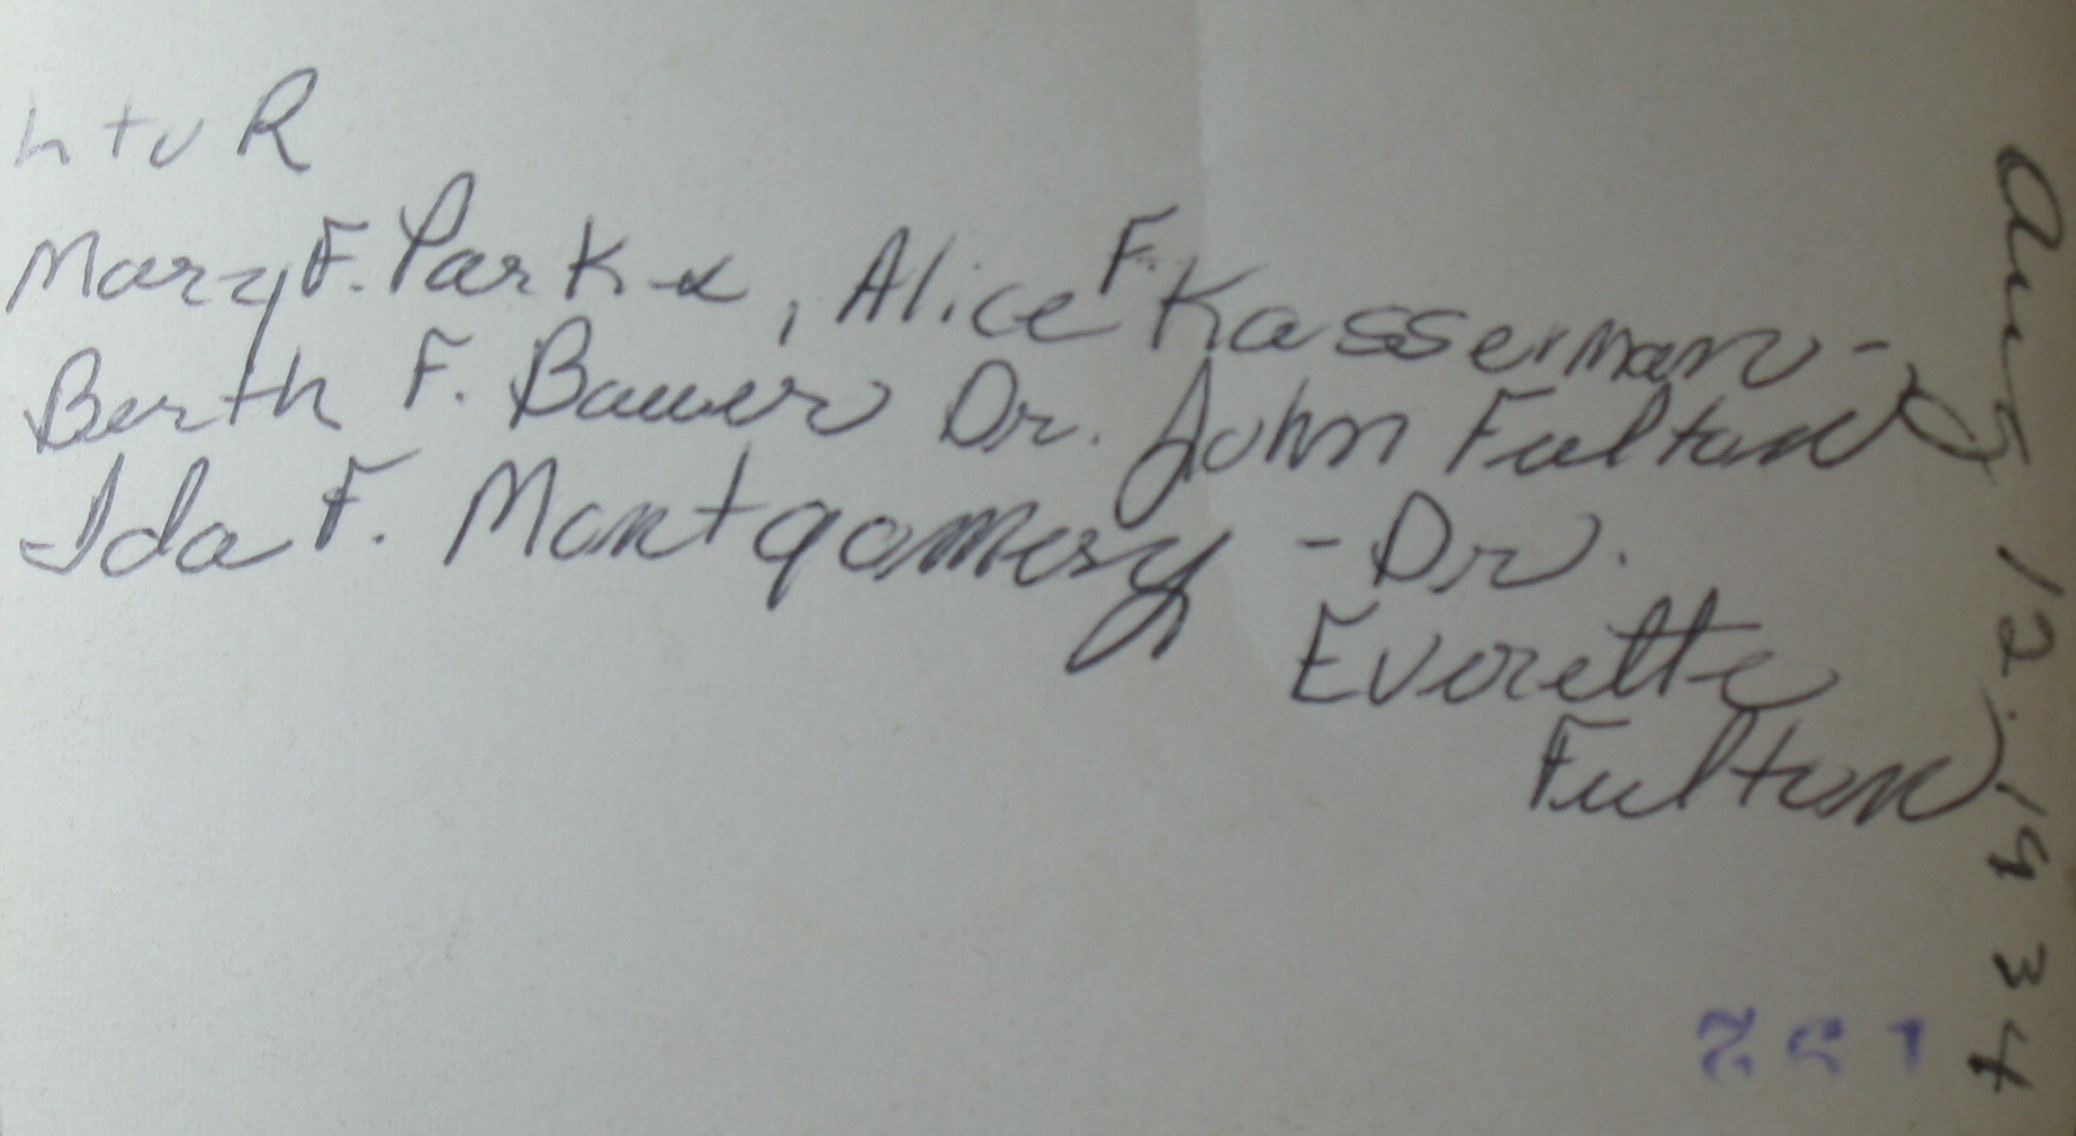 L to R
Mary F. Parks, Alice F. Kasserman -
Berth F. Bauer Dr. John Fulton
Ida F. Montgomery - Dr.
Everette
Fulton
Aug 12, 1934